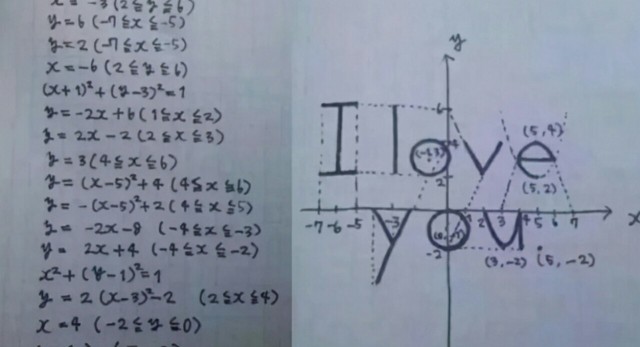 x = -3 (2≦y≦6)
y = 6 (-7≦x≦-5)
y = 2 (-7≦x≦-5)
x = -6 (2≦y≦6)
(x+1)²+(y-3)²=1
y = -2x+6 (1≦x≦2)
y = 2x-2 (2≦x≦3)
y = 3 (4≦x≦6)
y = (x-5)²+4 (4≦x≦6)
y = -(x-5)²+2 (4≦x≦5)
y = -2x-8 (-4≦x≦-3)
y = 2x+4 (-4≦x≦-2)
x²+(y-1)²=1
y = 2(x-3)²-2 (2≦x≦4)
x = 4 (-2≦y≦0)
y
6
I love
(5,4)
(-1,3)
4
2
(5,2)
-7 -6 -5 -3 1 2 3 4 5 6 7 x
you
(0,-1)
-2
(3,-2) (5,-2)